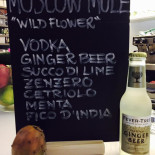 MOSCOW MULE
"WILD FLOWER"
VODKA
GINGER BEER
SUCCO DI LIME
ZENZERO
CETRIOLO
MENTA
FICO D'INDIA
FEVER-TREE
GINGER
BEER